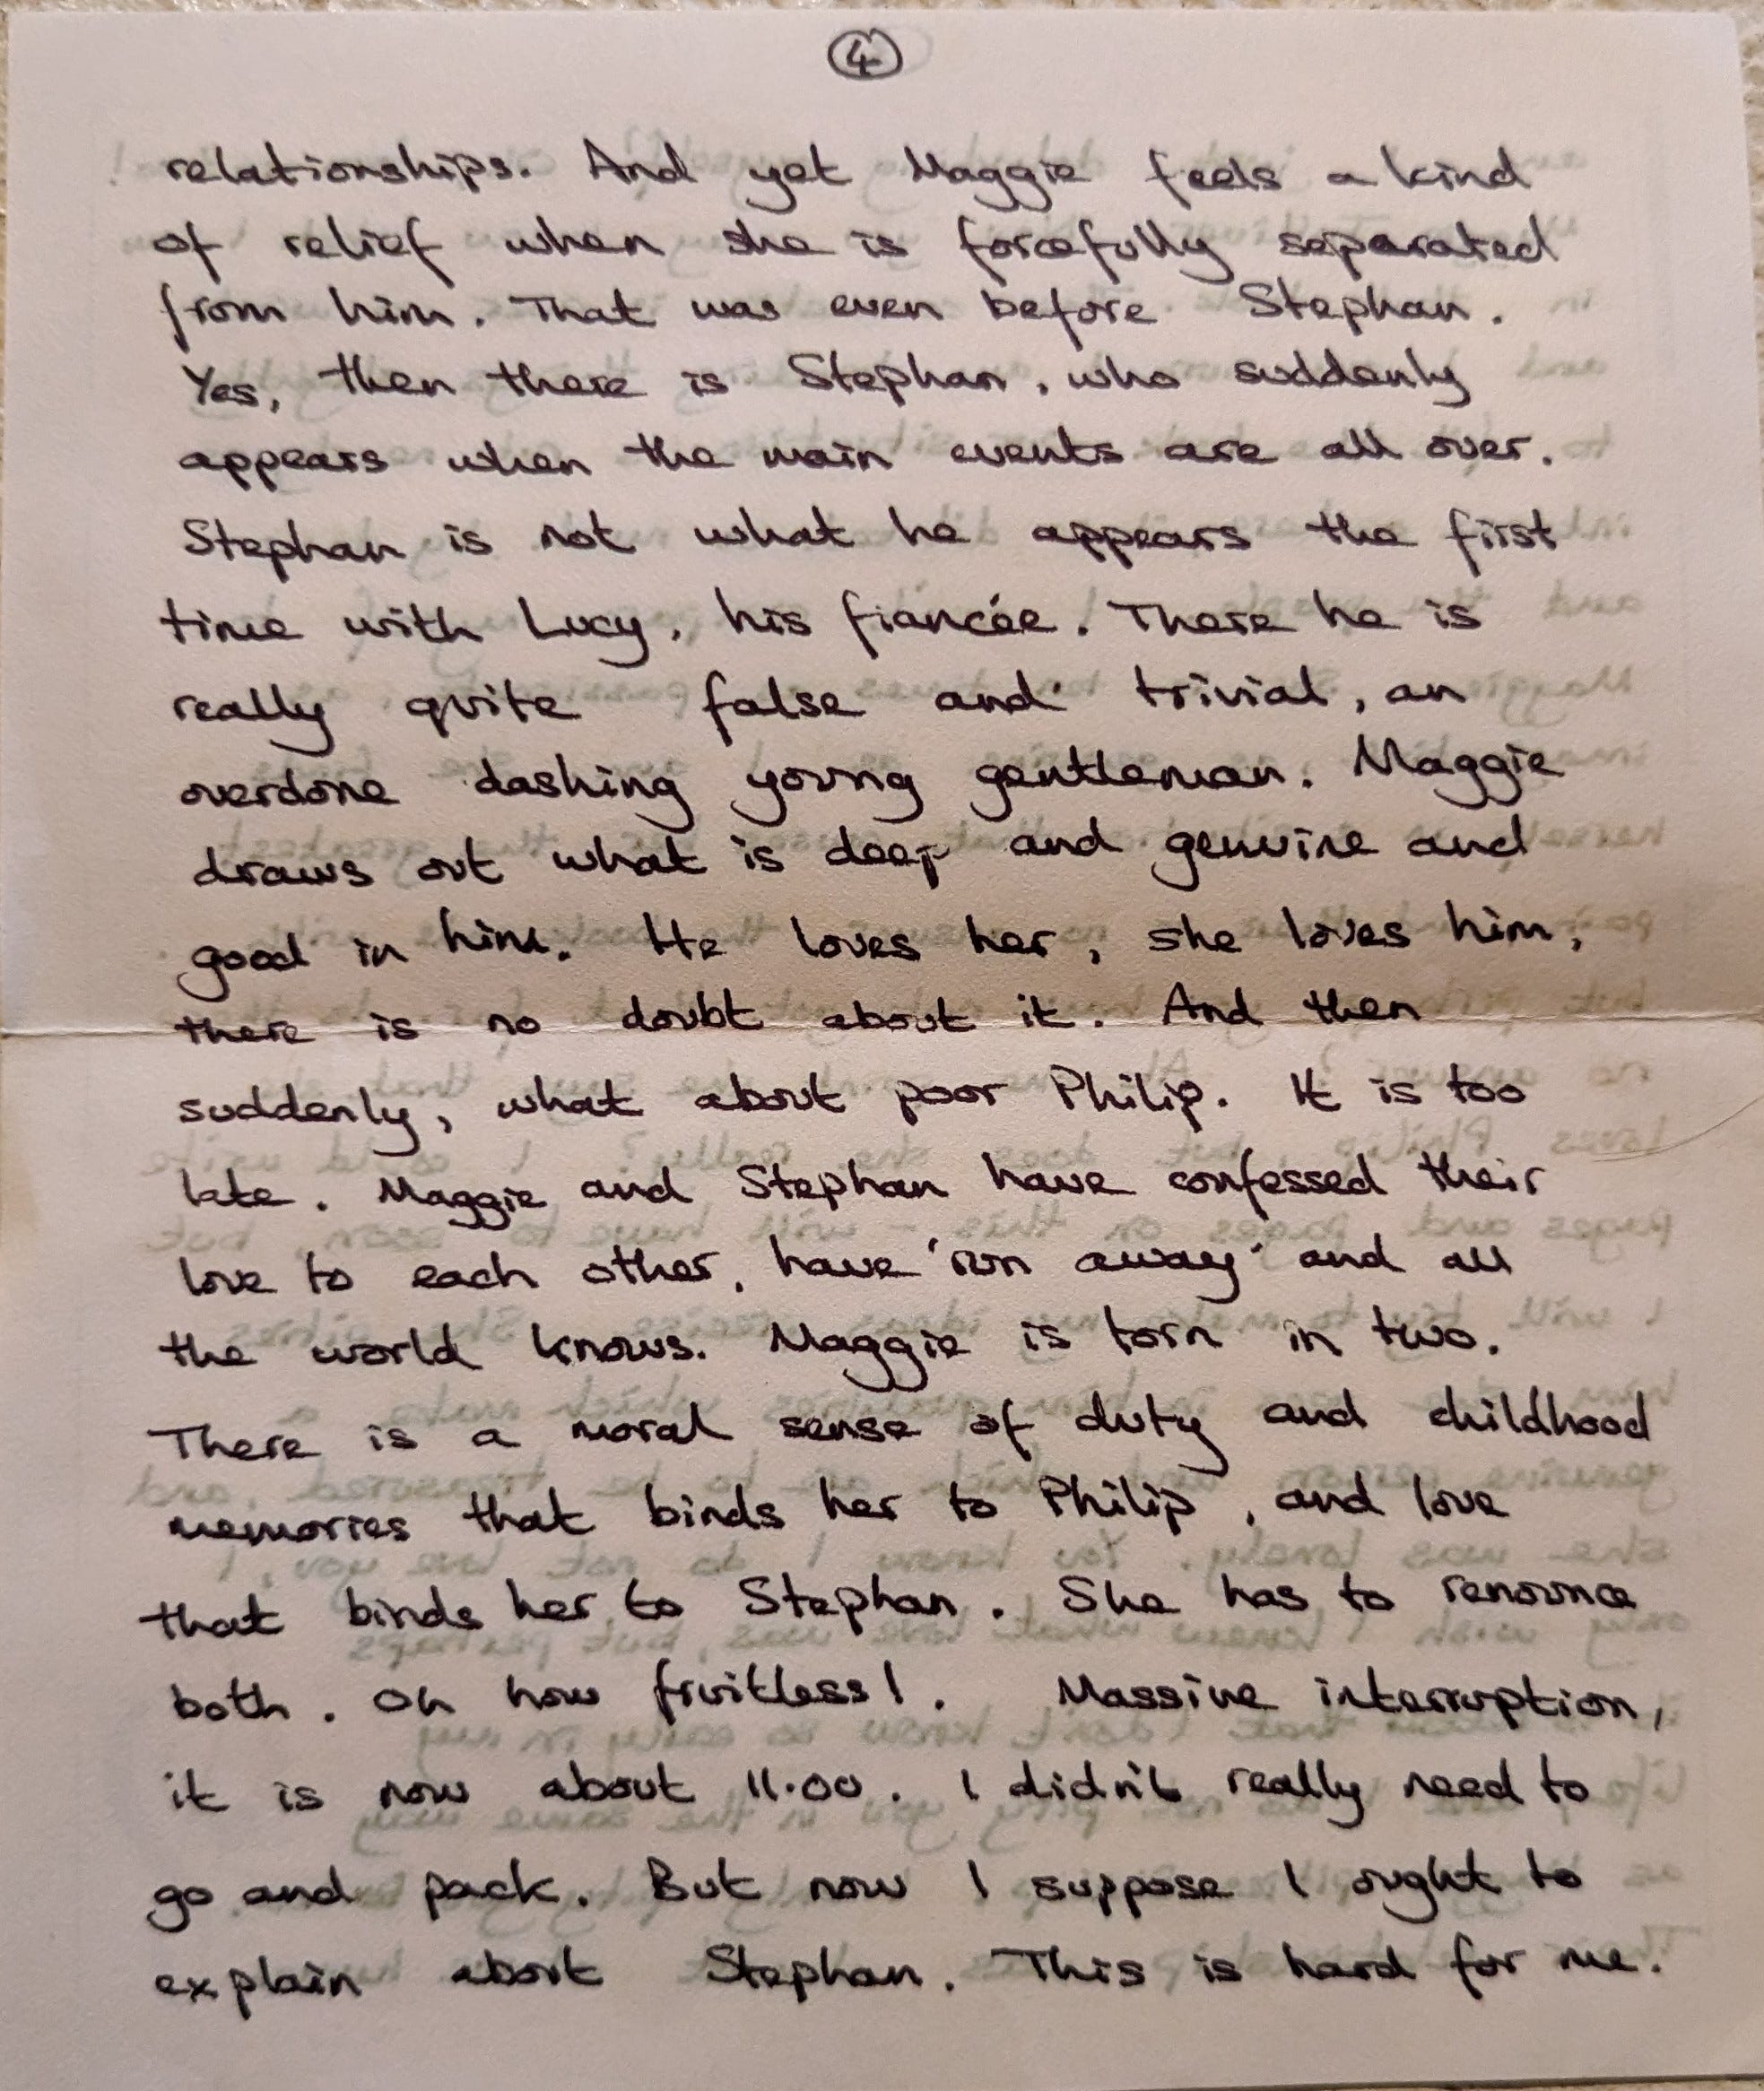 4
relationships. And yet Maggie feels a kind
of relief when she is forcefully separated
from him. That was even before Stephan.
Yes, then there is Stephan, who suddenly
appears when the main events are all over.
Stephan is not what he appears the first
time with Lucy, his fiancée. There he is
really quite false and trivial, an
overdone dashing young gentleman. Maggie
draws out what is deep and genuine and
good in him. He loves her, she loves him,
there is no doubt about it. And then
suddenly, what about poor Philip. It is too
late. Maggie and Stephan have confessed their
love to each other, have 'run away' and all
the world knows. Maggie is torn in two.
There is a moral sense of duty and childhood
memories that binds her to Philip, and love
that binds her to Stephan. She has to renounce
both. Oh how fruitless!. Massive interruption,
it is now about 11.00. I didn't really need to
go and pack. But now I suppose I ought to
explain about Stephan. This is hard for me.